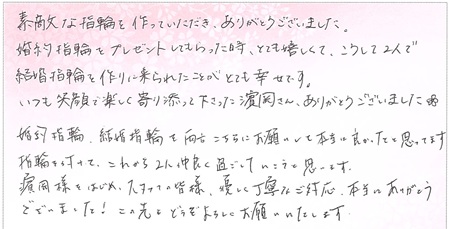 素敵な指輪を作っていただき、ありがとうございました。
婚約指輪をプレゼントしてもらった時、とても嬉しくて、こうして2人で
結婚指輪を作りに来られたことがとても幸せです。
いつも笑顔で楽しく寄り添って下さった濱岡さん、ありがとうございました
婚約指輪、結婚指輪を両方こちらにお願いして本当に良かったと思ってます
指輪をつけて、これから2人仲良く過ごしていこうと思います。
濱岡様をはじめ、スタッフの皆様、優しく丁寧なご対応、本当にありがとう
ございました！この先もどうぞよろしくお願いいたします